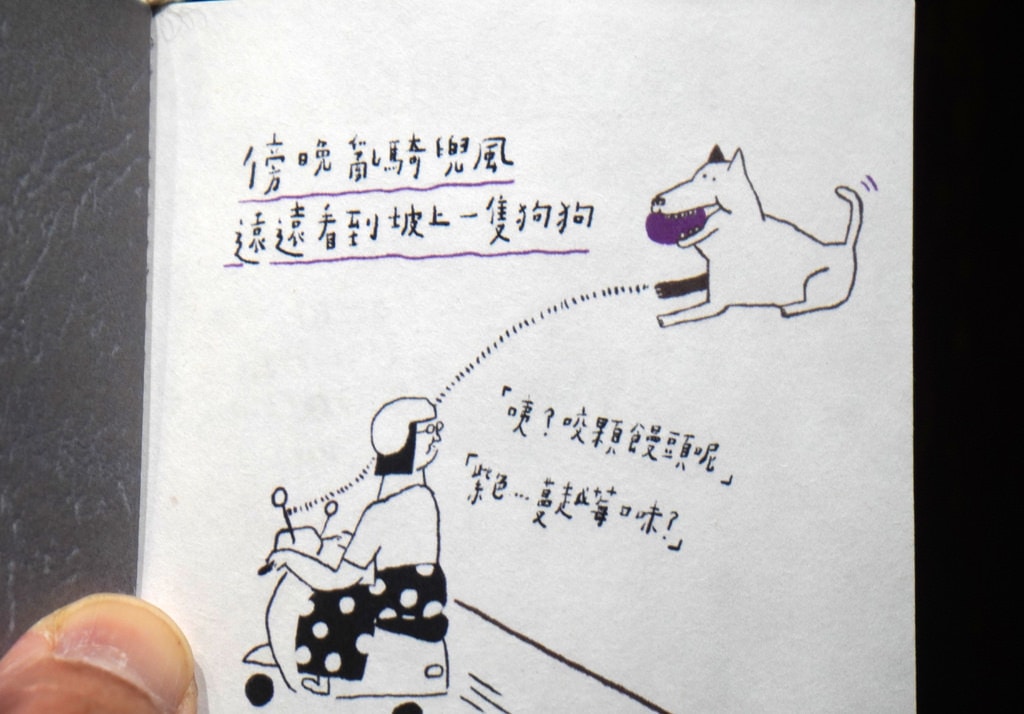 傍晚亂騎兜風
遠遠看到坡上一隻狗狗
「咦？咬顆饅頭呢」
「紫色…蔓越莓口味？」